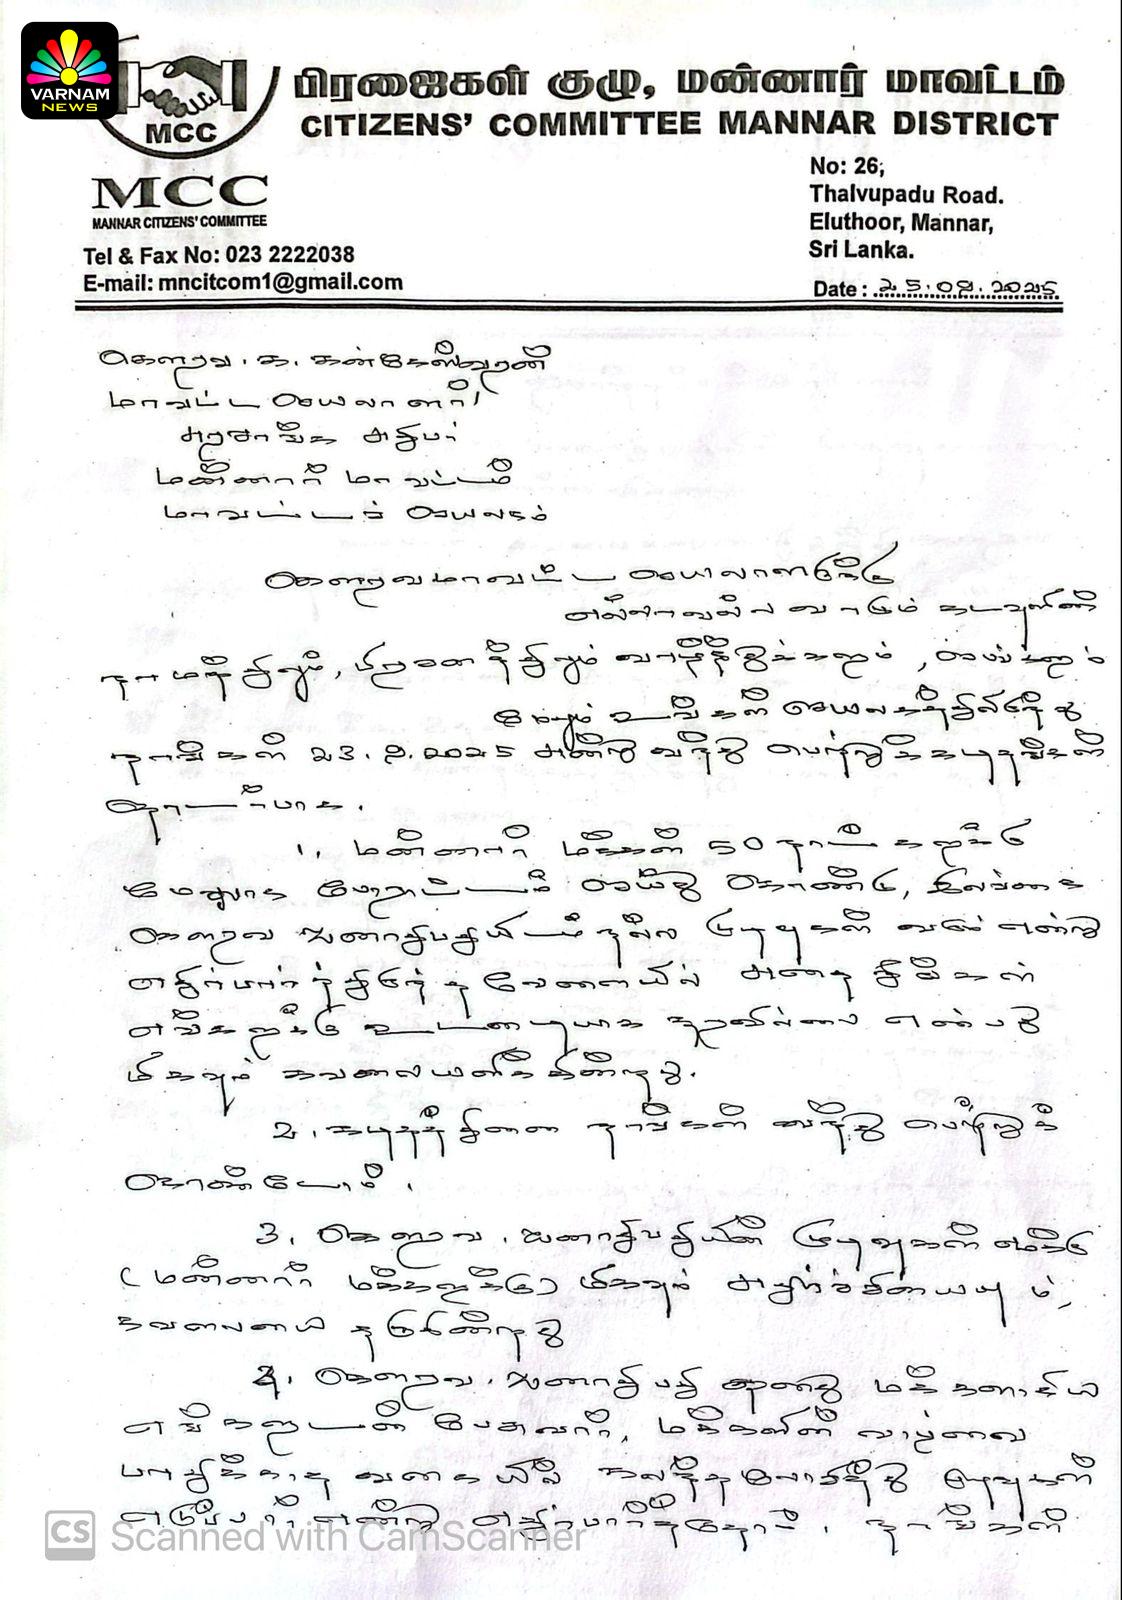 VARNAM
NEWS
பிரஜைகள் குழு, மன்னார் மாவட்டம்
CITIZENS' COMMITTEE MANNAR DISTRICT
MCC
MCC
MANNAR CITIZENS' COMMITTEE
No: 26,
Thalvupadu Road.
Eluthoor, Mannar,
Sri Lanka.
Tel & Fax No: 023 2222038
E-mail: mncitcom1@gmail.com
Date : 25.09.2025
கௌரவ. க. கனகேஸ்வரன்
மாவட்ட செயலாளர்/
அரசாங்க அதிபர்
மன்னார் மாவட்டம்
மாவட்டச் செயலகம்
கௌரவ மாவட்ட செயலாளருக்கு
எல்லாவல்ல வாழும் கடவுளின்
நாமத்திலும், பிரசன்னத்திலும் வாழ்த்துக்களும், செபங்களும்
மேலும் உங்கள் செயலகத்திலிருந்து
நாங்கள் 23.9.2025 அன்று வந்து பெற்றுக்கடிதங்கள்
தொடர்பாக.
1. மன்னார் மக்கள் 50 நாட்களுக்கு
மேலாக போராட்டம் செய்து கொண்டு, இலங்கை
கௌரவ ஜனாதிபதியிடம் நல்ல முடிவுகள் வரும் என்று
எதிர்பார்த்திருந்த வேளையில் அனாத நீங்கள்
எங்களுக்கு உடனடியாக தரவில்லை என்பது
மிகவும் கவலையளிக்கின்றது.
2. கடிதத்தினை நாங்கள் வந்து பெற்றுக்
கொண்டோம்.
3. கௌரவ. ஜனாதிபதியின் முடிவுகள் எமக்கு
(மன்னார் மக்களுக்கு) மிகவும் அதிர்ச்சியையும்,
கவலையை தருகின்றது
4. கௌரவ. ஜனாதிபதி தனது மக்களாகிய
எங்களுடன் பேசுவார், மக்களின் வாழ்வை
பாதிக்காத வகையில் கலந்தாலோசித்து முடிவுகள்
எடுப்பார் என்று எதிர்பார்த்தோம். நாங்கள்
CS Scanned with CamScanner